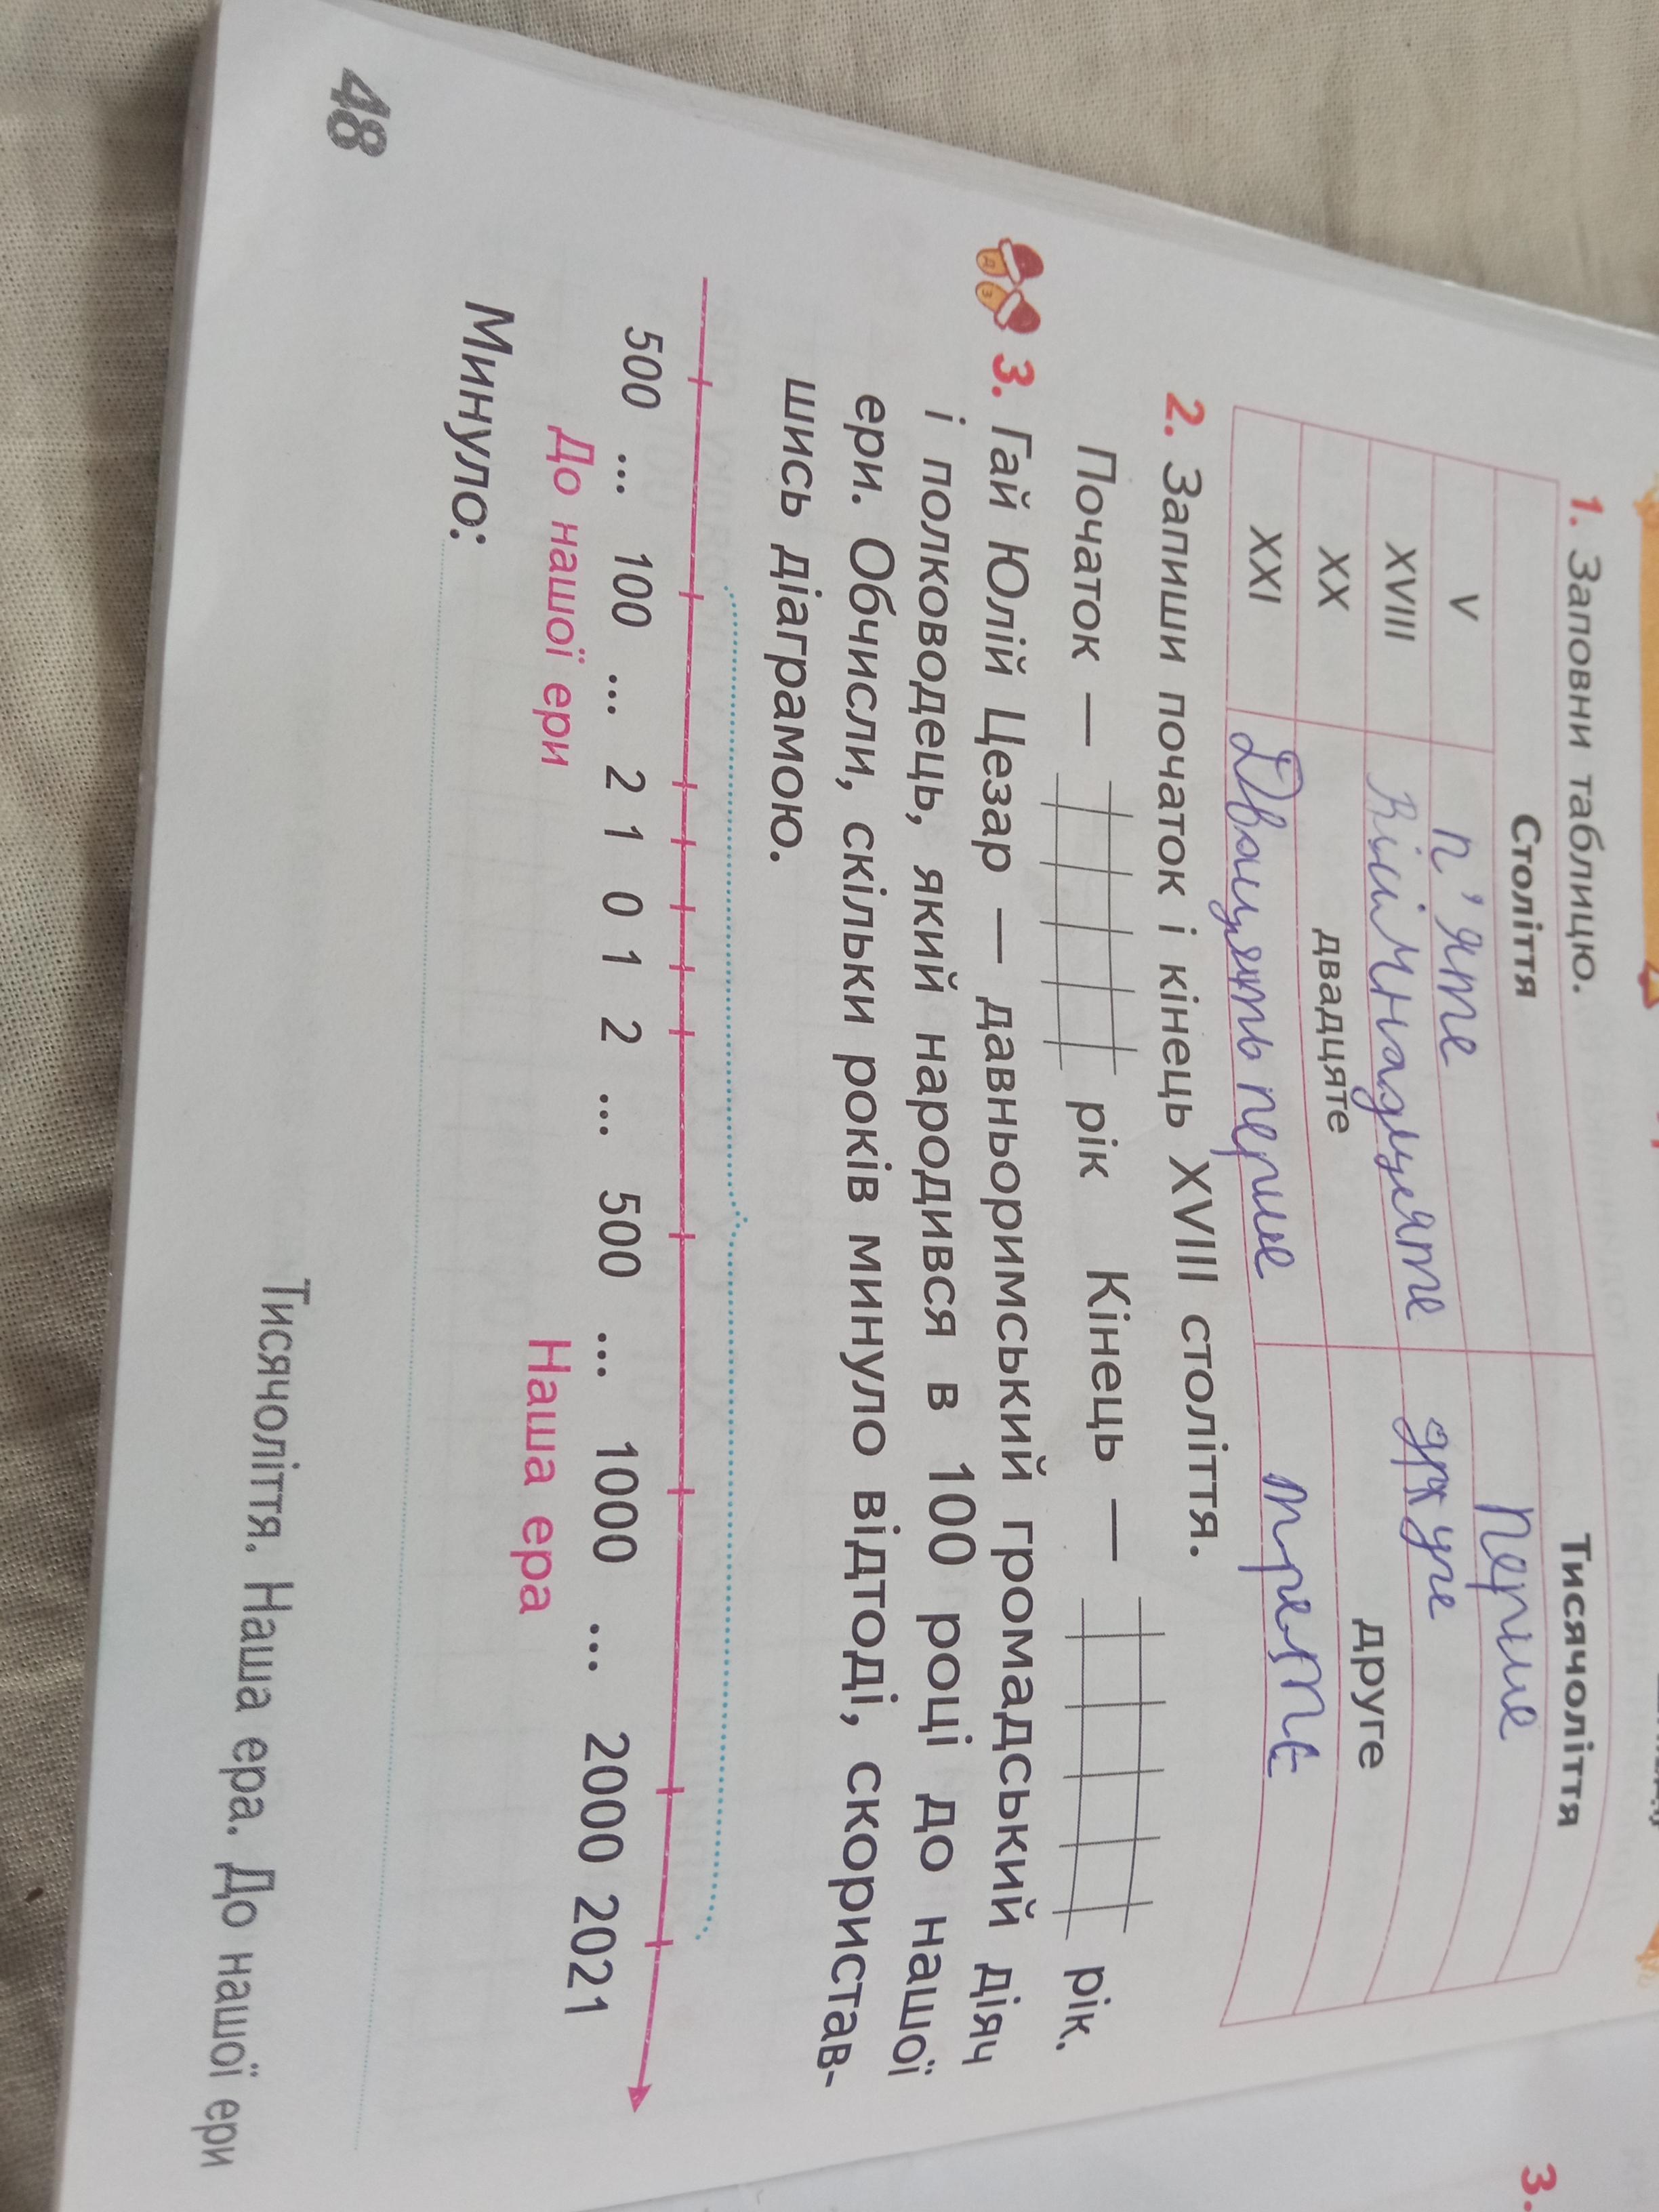 1. Заповни таблицю.
Століття Тисячоліття
V п'яте перше
XVIII вісімнадцяте друге
XX двадцяте друге
XXI Двадцять перше третє
2. Запиши початок і кінець XVIII століття.
Початок — рік Кінець — рік.
3. Гай Юлій Цезар — давньоримський громадський діяч
і полководець, який народився в 100 році до нашої
ери. Обчисли, скільки років минуло відтоді, скористав-
шись діаграмою.
500 ... 100 ... 2 1 0 1 2 ... 500 ... 1000 ... 2000 2021
До нашої ери Наша ера
Минуло:
48 Тисячоліття. Наша ера. До нашої ери
3.